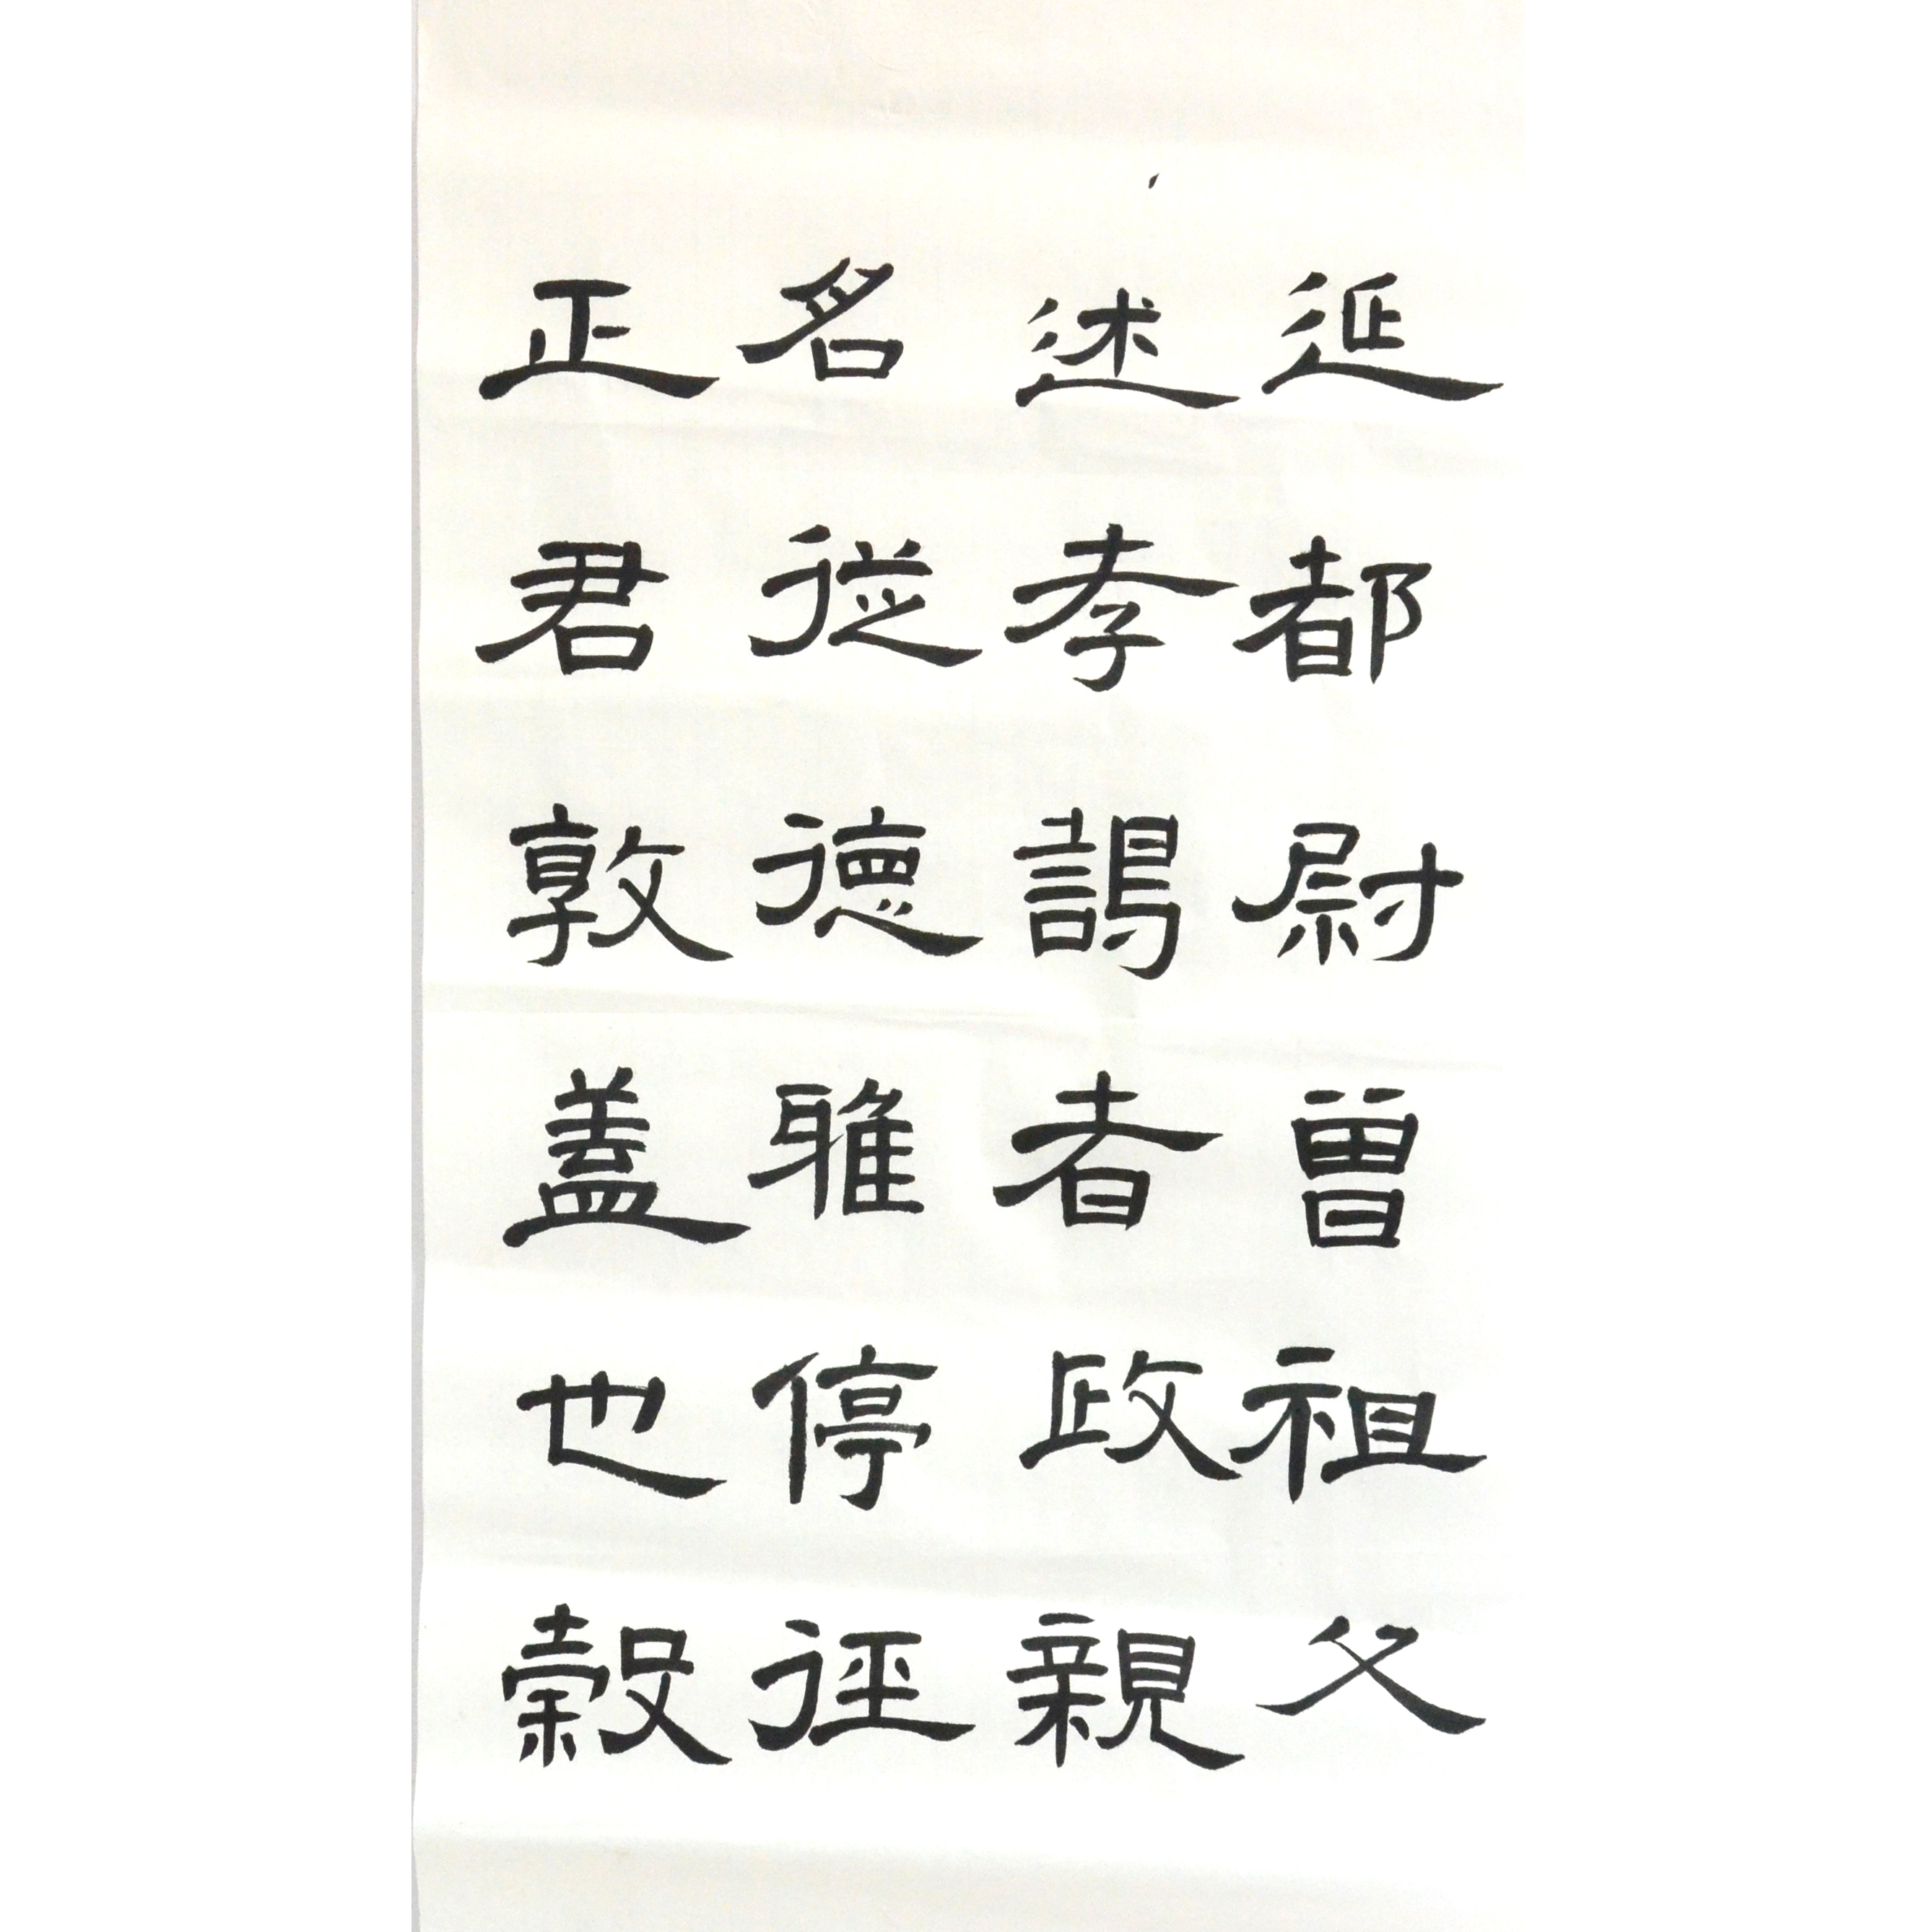 延都尉曾祖父
述孝謁者政親
名從德雅停徑
正君敦盖也穀